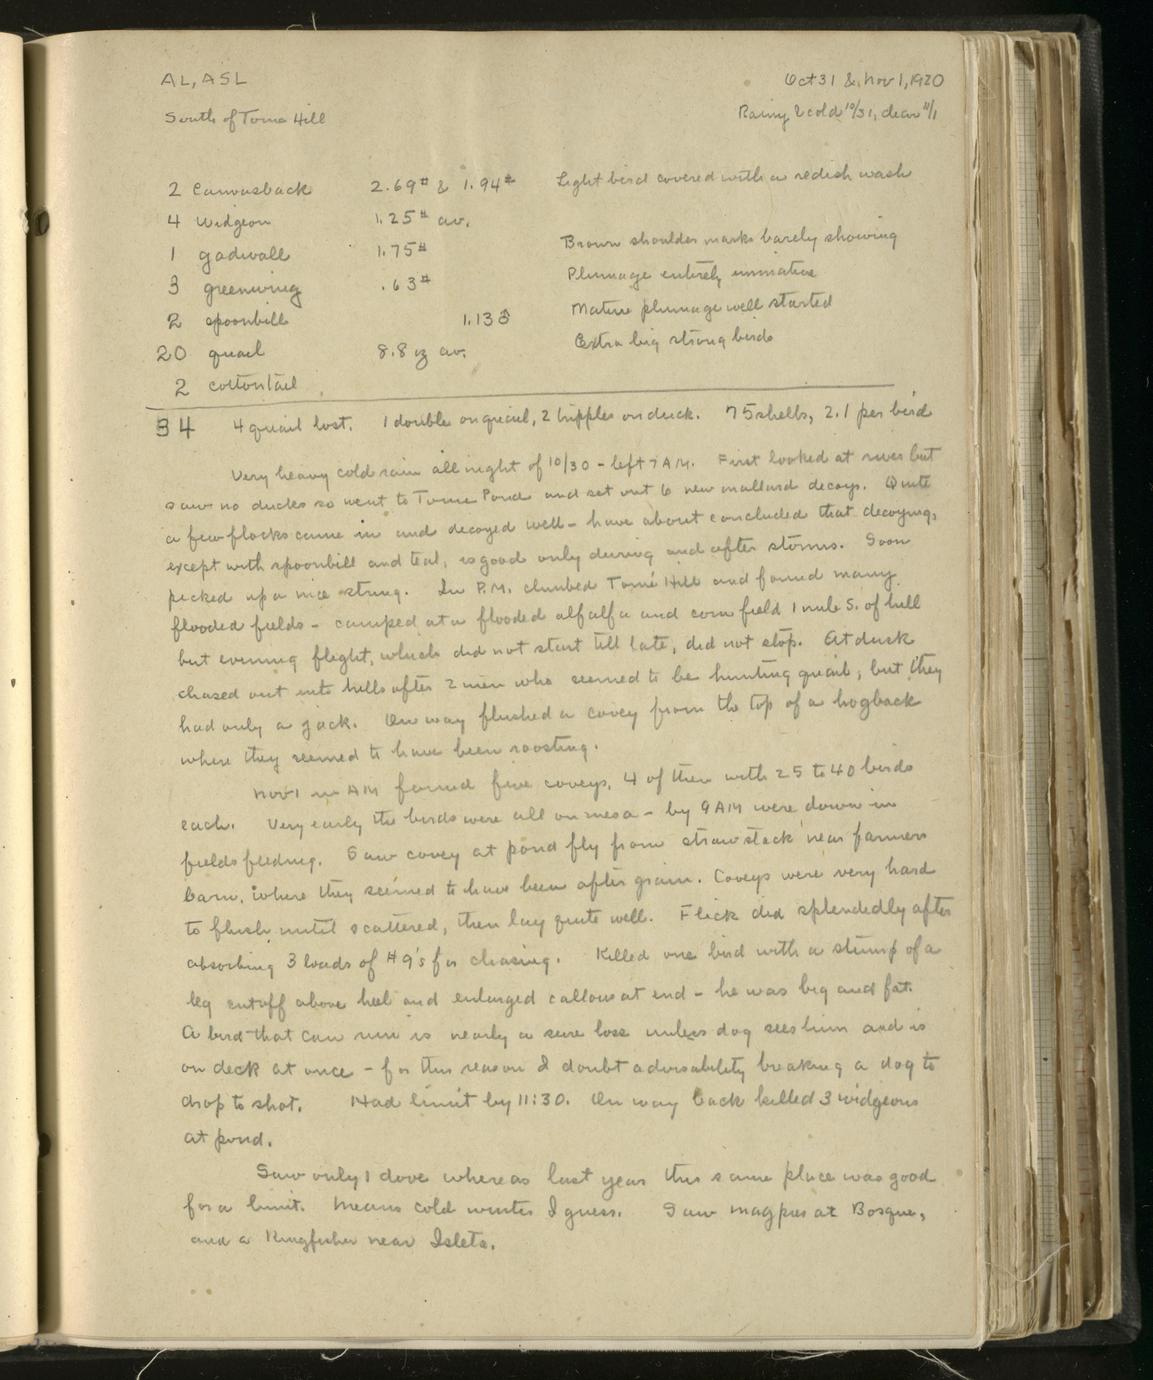 AL, ASL
Oct 31 & Nov 1, 1920
South of Tome Hill
Rainy & cold 10/31, clear 11/1
2 Canvasback 2.69# & 1.94# Light bird covered with a redish wash
4 widgeon 1.25# av.
1 gadwall 1.75# Brown shoulder marks barely showing
3 greenwing .63# Plumage entirely immature
2 spoonbill 1.13 Mature plumage well started
20 quail 8.8 oz av. Extra big strong birds
2 cottontail
34 4 quail lost. 1 double on quail, 2 tripples on duck. 75 shells, 2.1 per bird
Very heavy cold rain all night of 10/30 - left 7 A.M. First looked at river but
saw no ducks so went to Tome Pond and set out 6 new mallard decoys. Quite
a few flocks came in and decoyed well - have about concluded that decoying,
except with spoonbill and teal, is good only during and after storms. Soon
picked up a nice string. In P.M. climbed Tomé Hill and found many
flooded fields - camped at a flooded alfalfa and corn field 1 mile S. of hill
but evening flight, which did not start till late, did not stop. At dusk
chased out into hills after 2 men who seemed to be hunting quail, but they
had only a jack. On way flushed a covey from the top of a hogback
where they seemed to have been roosting.
Nov 1 in AM found five coveys, 4 of them with 25 to 40 birds
each. Very early the birds were all on mesa - by 9 AM were down in
fields feeding. Saw covey at pond fly from straw stack near farmers
barn, where they seemed to have been after grain. Coveys were very hard
to flush until scattered, then lay quite well. Flick did splendedly after
absorbing 3 loads of #9's for chasing. Killed one bird with a stump of a
leg cut off above heel and enlarged callous at end - he was big and fat.
A bird that can run is nearly a sure loss unless dog sees him and is
on deck at once - for this reason I doubt advisability breaking a dog to
drop to shot. Had limit by 11:30. On way back killed 3 widgeons
at pond.
Saw only 1 dove whereas last year this same place was good
for a limit. Means cold winter I guess. Saw magpies at Bosque,
and a Kingfisher near Isleta.